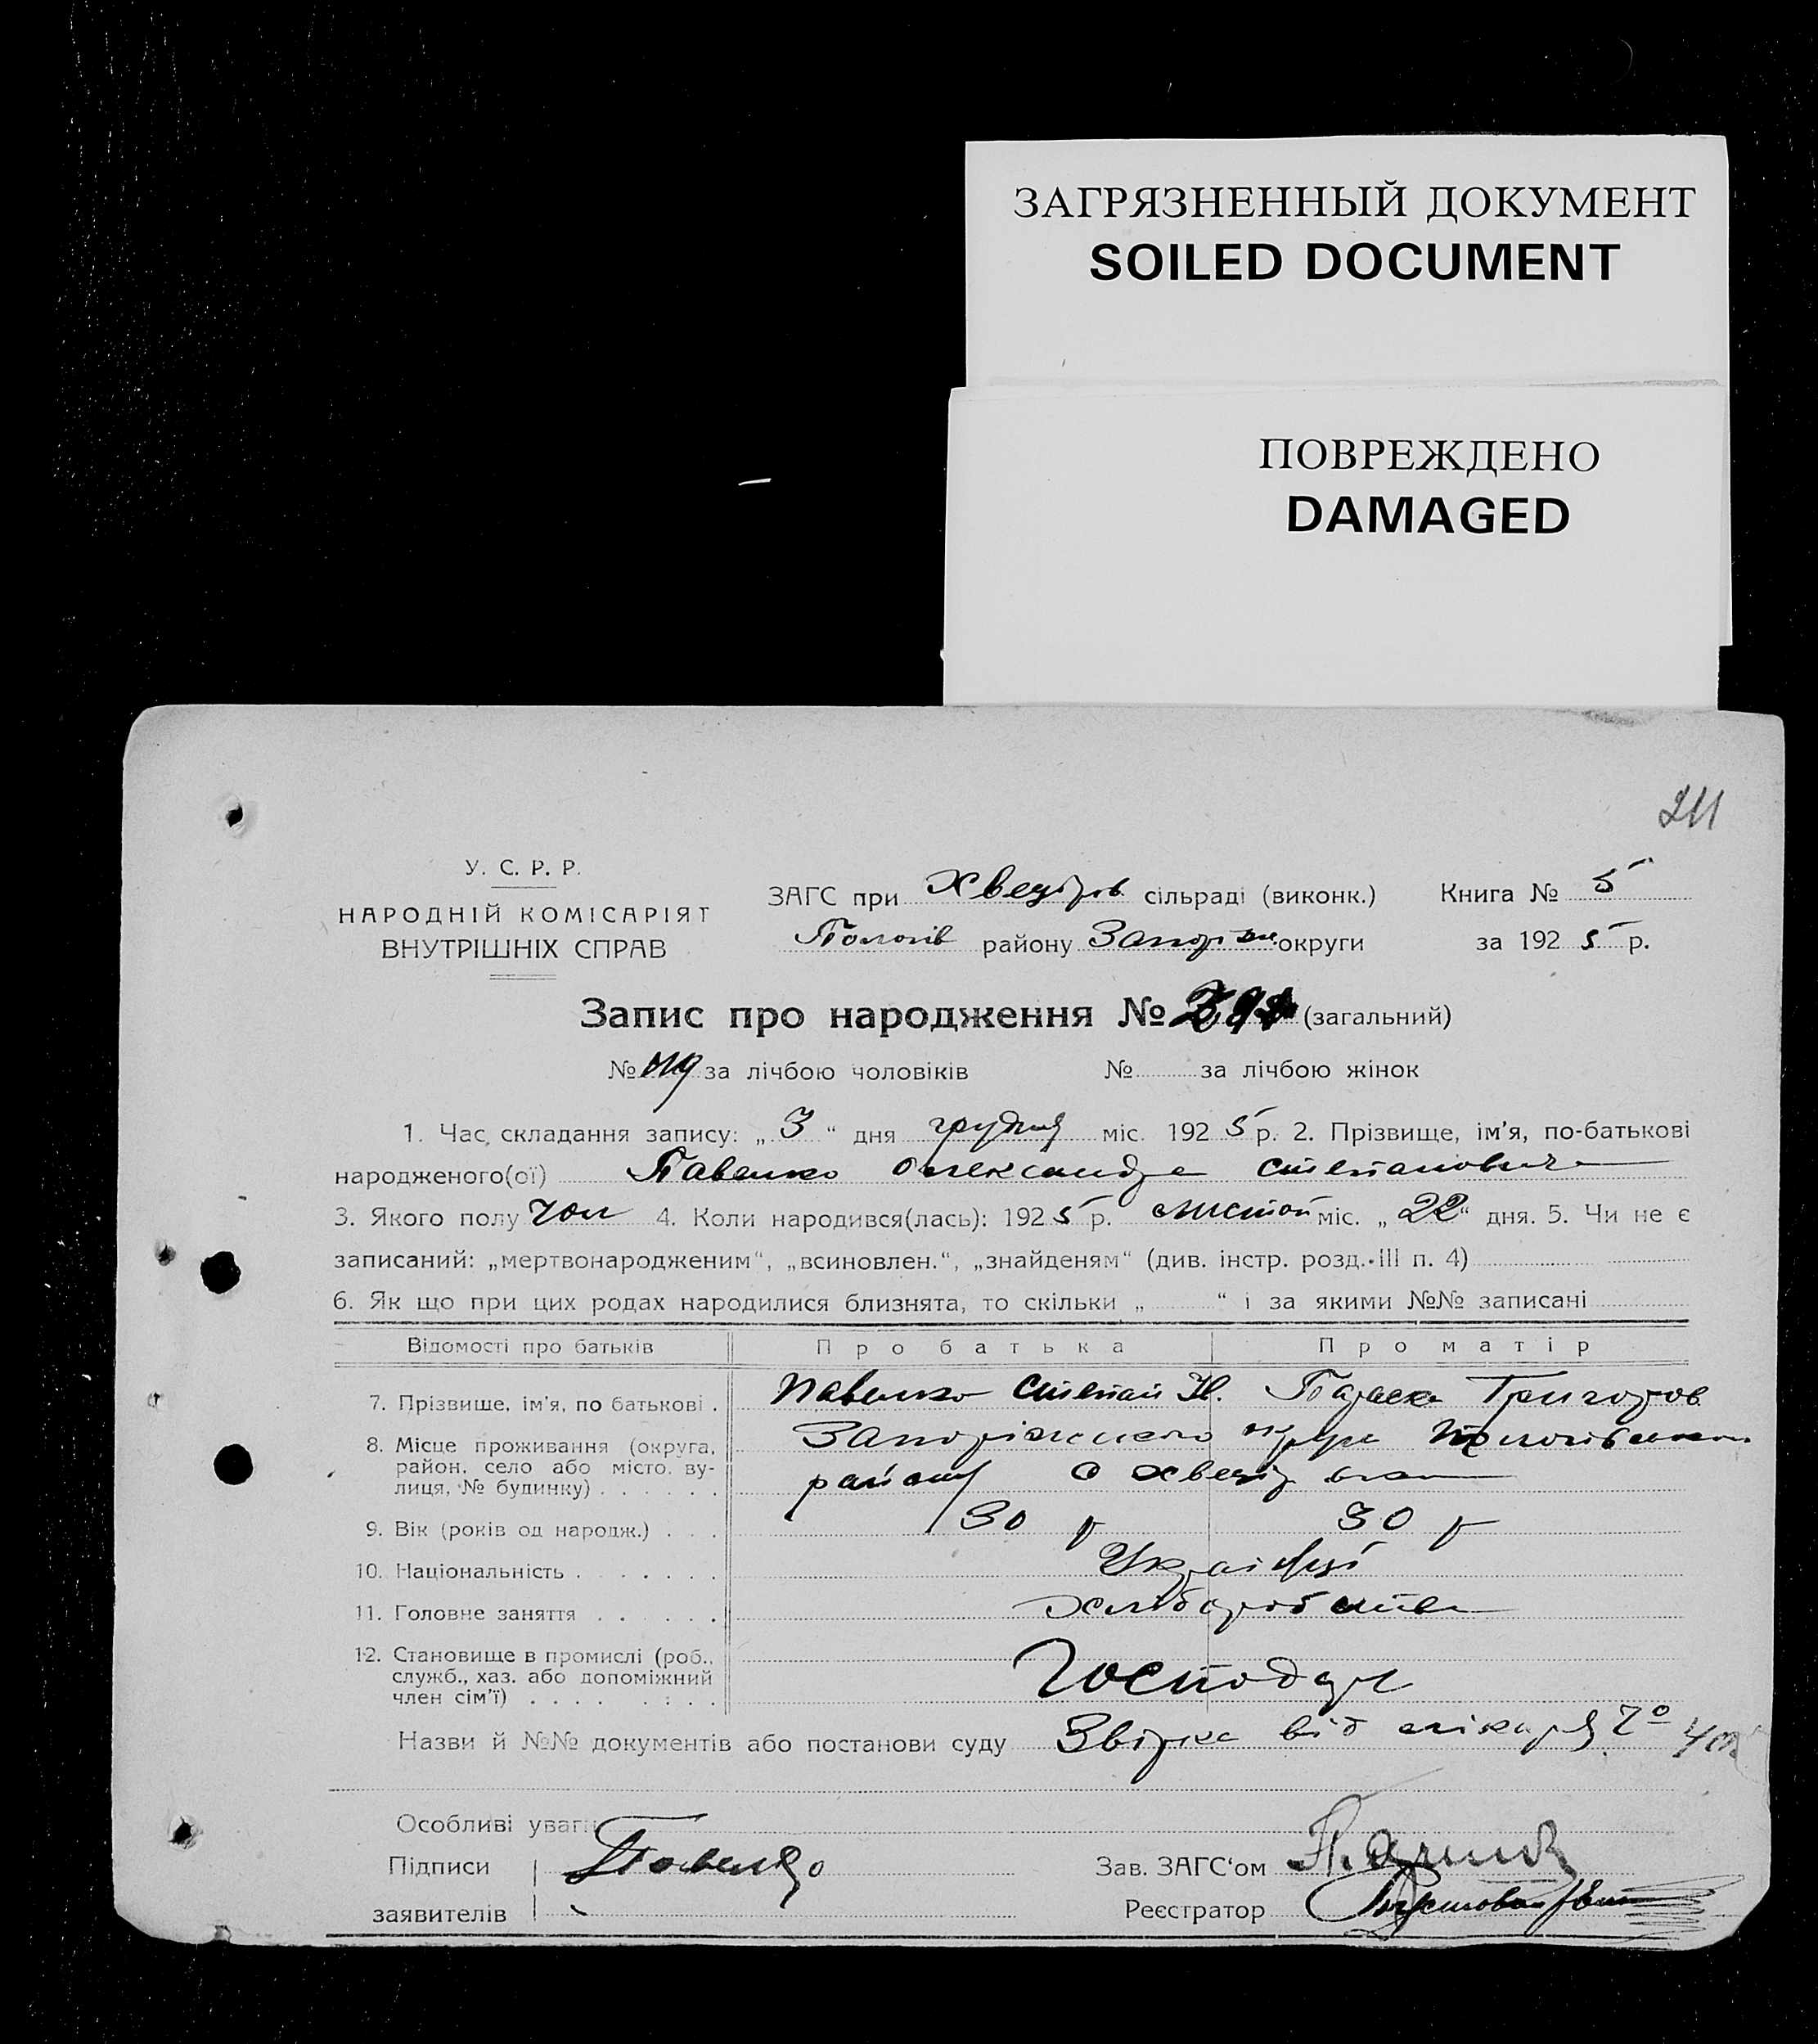 ЗАГРЯЗНЕННЫЙ ДОКУМЕНТ
SOILED DOCUMENT
ПОВРЕЖДЕНО
DAMAGED
211
У. С. Р. Р.
НАРОДНІЙ КОМІСАРІЯТ
ВНУТРІШНІХ СПРАВ
ЗАГС при Хведорів. сільраді (виконк.) Книга № 5
Пологів району Запоріж. округи за 1925 р.
Запис про народження № (загальний)
№ 119 за лічбою чоловіків № за лічбою жінок
1. Час складання запису: „3“ дня грудня міс. 1925 р. 2. Прізвище, ім'я, по-батькові
народженого(ої) Павенко Олександр Степанович
3. Якого полу чол 4. Коли народився(лась): 1925 р. листоп міс. „22“ дня. 5. Чи не є
записаний: „мертвонародженим“, „всиновлен.“, „знайденям“ (див. інстр. розд. III п. 4)
6. Як що при цих родах народилися близнята, то скільки „ “ і за якими №№ записані
Відомості про батьків Про батька Про матір
7. Прізвище, ім'я, по батькові . Павенко Степан Параска Григоров
8. Місце проживання (округа, Запоріжського округи Пологівського
район, село або місто, ву- району с
лиця, № будинку) . . . . . .
9. Вік (років од народж.) . . . 30 р 30 р
10. Національність . . . . . . . Українці
11. Головне заняття . . . . . Хліборобство
12. Становище в промислі (роб., Господар
служб., хаз. або допоміжний
член сім'ї) . . . . . . . .
Назви й №№ документів або постанови суду від лікаря
Особливі уваги
Підписи Павенко Зав. ЗАГС‘ом
заявителів Реєстратор